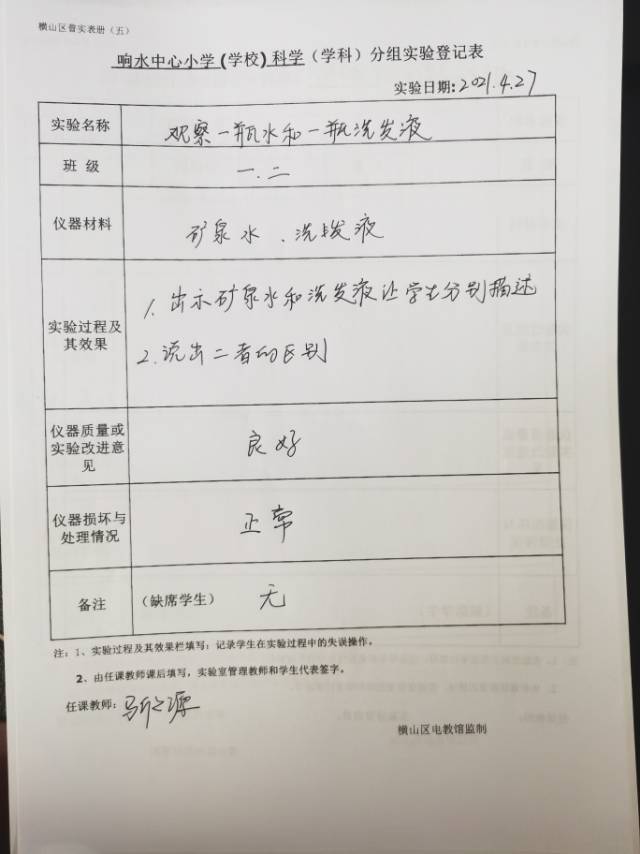 横山区普实表册（五）
响水中心小学(学校)科学（学科）分组实验登记表
实验日期:2021.4.27
实验名称 观察一瓶水和一瓶洗发液
班 级 一.二
仪器材料 矿泉水、洗发液
实验过程及
其效果
1. 出示矿泉水和洗发液让学生分别描述
2. 说出二者的区别
仪器质量或
实验改进意
见
良好
仪器损坏与
处理情况
正常
备注 （缺席学生） 无
注：1、实验过程及其效果栏填写：记录学生在实验过程中的失误操作。
2、由任课教师课后填写，实验室管理教师和学生代表签字。
任课教师:
横山区电教馆监制